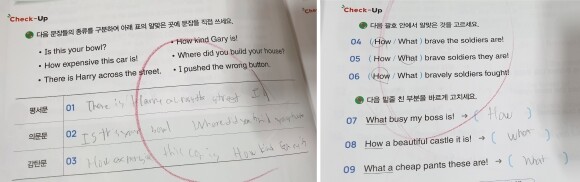 Check-Up
다음 문장들의 종류를 구분하여 아래 표의 알맞은 곳에 문장을 직접 쓰세요.
• Is this your bowl?
• How kind Gary is!
• How expensive this car is!
• Where did you build your house?
• There is Harry across the street.
• I pushed the wrong button.
평서문 01 There is Harry across the street I
의문문 02 Is this your bowl Where did you
감탄문 03 How this car is How kind
Check-Up
다음 괄호 안에서 알맞은 것을 고르세요.
04 ( How / What ) brave the soldiers are!
05 ( How / What ) brave soldiers they are!
06 ( How / What ) bravely soldiers fought!
다음 밑줄 친 부분을 바르게 고치세요.
07 What busy my boss is! → ( How )
08 How a beautiful castle it is! → ( what )
09 What a cheap pants these are! → ( What )